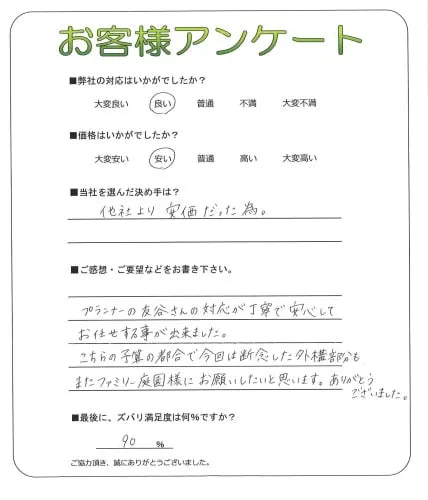 お客様アンケート
■弊社の対応はいかがでしたか?
大変良い 良い 普通 不満 大変不満
■価格はいかがでしたか?
大変安い 安い 普通 高い 大変高い
■当社を選んだ決め手は?
他社より安価だった為。
■ご感想・ご要望などをお書き下さい。
プランナーの友谷さんの対応が丁寧で安心して
お任せする事が出来ました。
こちらの予算の都合で今回は断念した外構部分も
またファミリー庭園様にお願いしたいと思います。ありがとう
ございました。
■最後に、ズバリ満足度は何%ですか?
90 %
ご協力頂き、誠にありがとうございました。